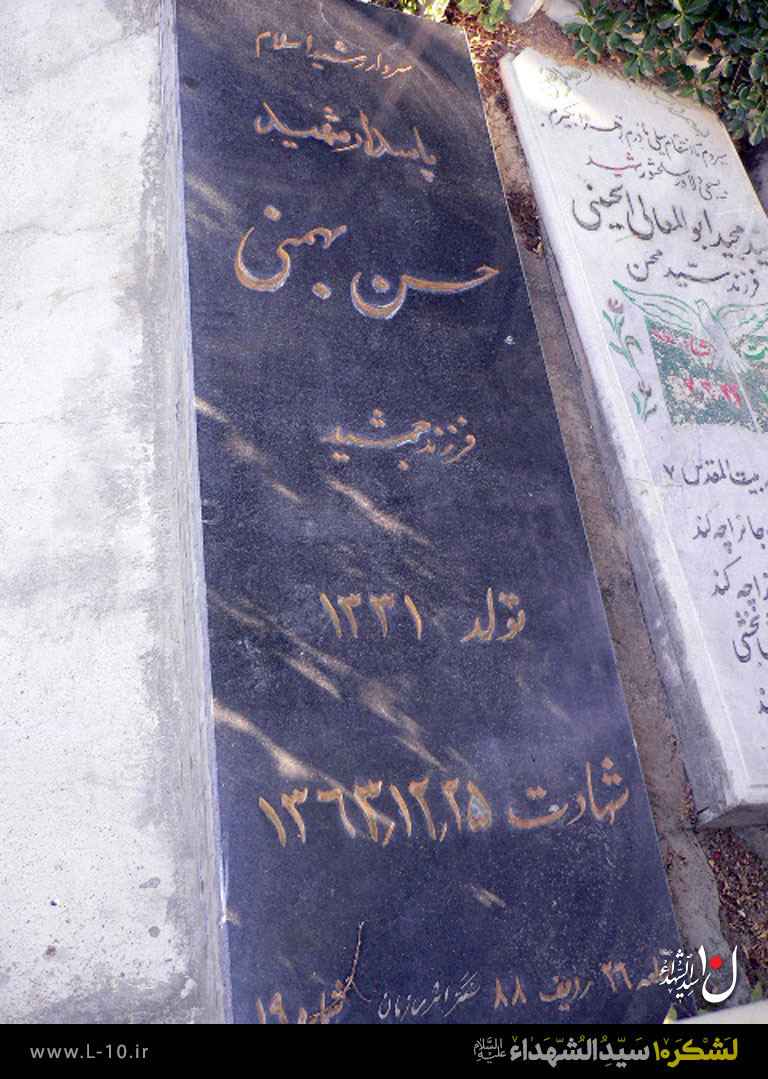 سردار رشید اسلام
پاسدار شهید
حسن بهمنی
فرزند جمشید
تولد ۱۳۳۱
شهادت ۱۳۶۳٫۱۲٫۲۵
۲۶ ردیف ۸۸
شماره ۱۹
مجید ابوالمعالی الحسینی
فرزند سید محسن
بیت المقدس ۷
را چه کند
لن سیدالشهداء
لشکر۱۰ سیدالشهداء علیه‌السلام
www.L-10.ir